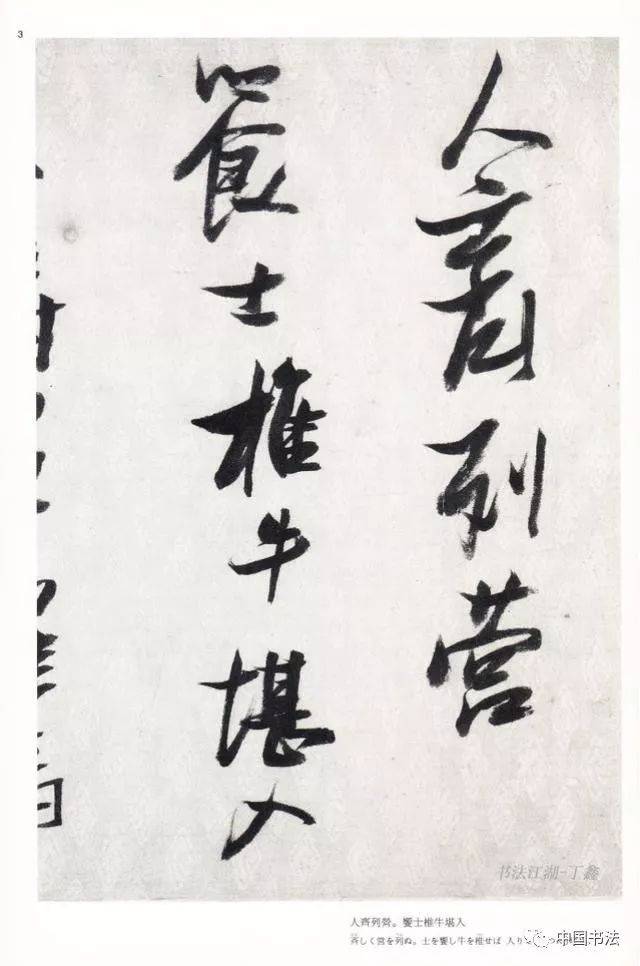 3
人齊列營
饗士椎牛堪入
书法江湖-丁鑫
人齊列營。饗士椎牛堪入
斉しく営を列ぬ。士を饗し牛を椎せば 入り
中国书法